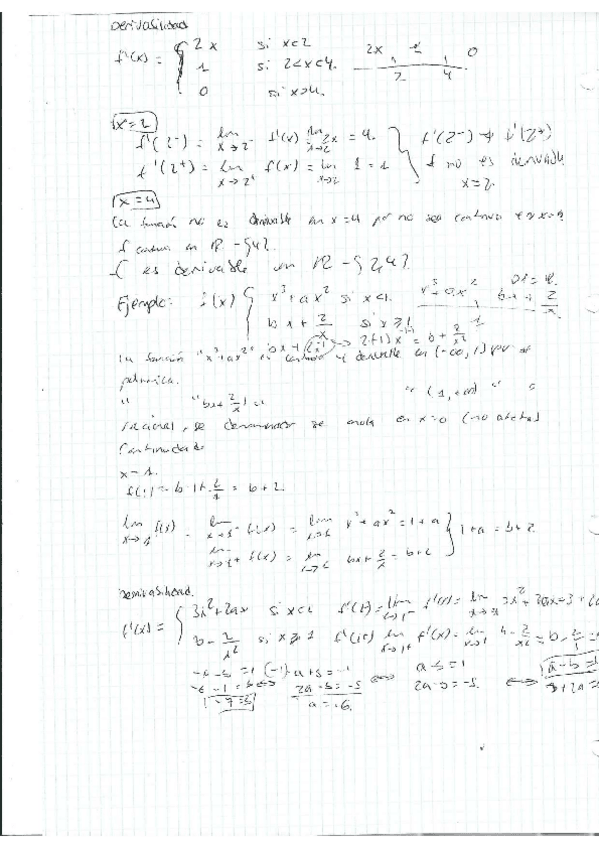 Derivabilidad
f'(x) = { 2x si x<2 2x 1 0
1 si 2<x<4. 2 4
0 si x>4.
x=2
f'(2⁻) = lim x→2⁻ f'(x) lim x→2 2x = 4. } f'(2⁻) ≠ f'(2⁺)
f'(2⁺) = lim x→2⁺ f(x) = lim x→2 1 = 1 f no es derivable
x=2
x=4
La función no es derivable en x=4 por no ser continua en x=4
f continua en R - {4}.
f es derivable en R - {2,4}.
Ejemplo: f(x) { x³+ax² si x<1. x³+ax² bx+2/x
bx+2/x si x≥1 1
La función "x³+ax²" es continua y derivable en (-∞,1) por
polinómica.
" "bx+2/x" " "(1,+∞)"
racional, se denominador se anula en x=0 (no afecta)
Continuidad
x=1.
f(1)= b·1+2/1 = b+2.
lim x→1 f(x) lim x→1⁻ f(x) = lim x→1 x³+ax² = 1+a } 1+a = b+2
lim x→1⁺ f(x) = lim x→1 bx+2/x = b+2
Derivabilidad.
f'(x) = { 3x²+2ax si x<1 f'(1⁻)= lim x→1⁻ f'(x)= lim x→1 3x²+2ax=3+2a
b-2/x² si x≥1 f'(1⁺) lim x→1⁺ f'(x)= lim x→1 b-2/x² = b-2/1
-6-b=1 (-1)·-a+b=-1 a-b=1 a-b=1
-6-1=b 2a-b=-5 2a-b=-5. -b+2a=
-7=b a=-6